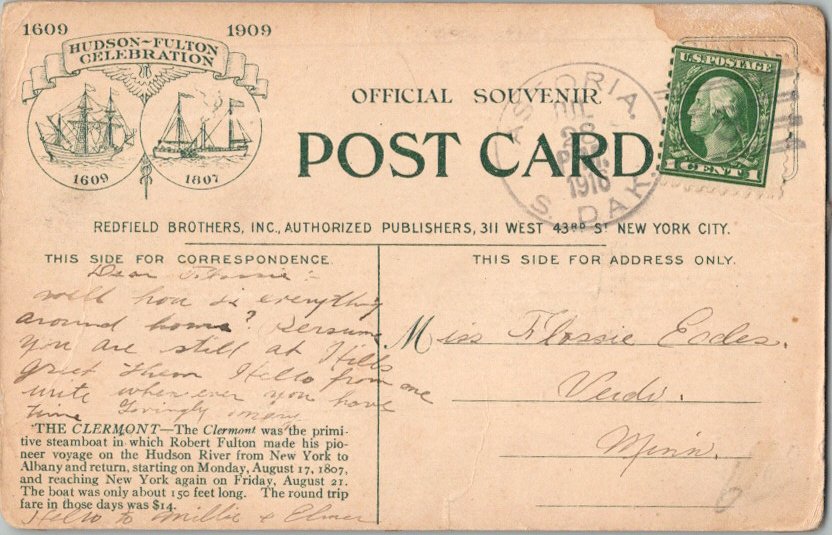 1609 1909
HUDSON-FULTON
CELEBRATION
1609
1807
OFFICIAL SOUVENIR
POST CARD
ASTORIA,
28
P.M.
1916
S. DAK.
U.S. POSTAGE
1 CENT 1
REDFIELD BROTHERS, INC., AUTHORIZED PUBLISHERS, 311 WEST 43RD ST NEW YORK CITY.
THIS SIDE FOR CORRESPONDENCE.
THIS SIDE FOR ADDRESS ONLY.
Dear Flossie:-
Well how is everything
around home? Persume
you are still at Hills
greet them Hello from me
write when ever you have
time Lovingly Mary
Miss Flossie Eades.
Verdi.
Minn.
THE CLERMONT—The Clermont was the primi-
tive steamboat in which Robert Fulton made his pio-
neer voyage on the Hudson River from New York to
Albany and return, starting on Monday, August 17, 1807,
and reaching New York again on Friday, August 21.
The boat was only about 150 feet long. The round trip
fare in those days was $14.
Hello to Millie & Elmer